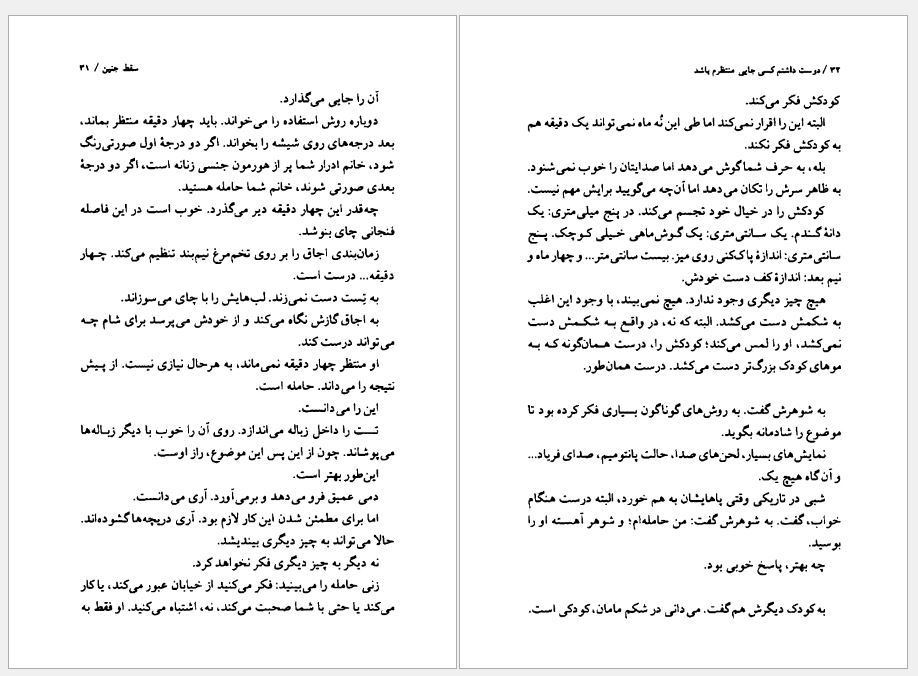 سقط جنین / ۳۱
آن را جایی می‌گذارد.
دوباره روش استفاده را می‌خواند. باید چهار دقیقه منتظر بماند،
بعد درجه‌های روی شیشه را بخواند. اگر دو درجهٔ اول صورتی‌رنگ
شود، خانم ادرار شما پر از هورمون جنسی زنانه است، اگر دو درجهٔ
بعدی صورتی شوند، خانم شما حامله هستید.
چه‌قدر این چهار دقیقه دیر می‌گذرد. خوب است در این فاصله
فنجانی چای بنوشد.
زمان‌بندی اجاق را بر روی تخم‌مرغ نیم‌بند تنظیم می‌کند. چهار
دقیقه... درست است.
به تِست دست نمی‌زند. لب‌هایش را با چای می‌سوزاند.
به اجاق گازش نگاه می‌کند و از خودش می‌پرسد برای شام چه
می‌تواند درست کند.
او منتظر چهار دقیقه نمی‌ماند، به هرحال نیازی نیست. از پیش
نتیجه را می‌داند. حامله است.
این را می‌دانست.
تست را داخل زباله می‌اندازد. روی آن را خوب با دیگر زباله‌ها
می‌پوشاند. چون از این پس این موضوع، راز اوست.
این‌طور بهتر است.
دمی عمیق فرو می‌دهد و برمی‌آورد. آری می‌دانست.
اما برای مطمئن شدن این کار لازم بود. آری دریچه‌ها گشوده‌اند.
حالا می‌تواند به چیز دیگری بیندیشد.
نه دیگر به چیز دیگری فکر نخواهد کرد.
زنی حامله را می‌بینید: فکر می‌کنید از خیابان عبور می‌کند، یا کار
می‌کند یا حتی با شما صحبت می‌کند، نه، اشتباه می‌کنید. او فقط به
۳۲ / دوست داشتم کسی جایی منتظرم باشد
کودکش فکر می‌کند.
البته این را اقرار نمی‌کند اما طی این نُه ماه نمی‌تواند یک دقیقه هم
به کودکش فکر نکند.
بله، به حرف شما گوش می‌دهد اما صدایتان را خوب نمی‌شنود.
به ظاهر سرش را تکان می‌دهد اما آن‌چه می‌گویید برایش مهم نیست.
کودکش را در خیال خود تجسم می‌کند. در پنج میلی‌متری: یک
دانهٔ گندم. یک سانتی‌متری: یک گوش‌ماهی خیلی کوچک. پنج
سانتی‌متری: اندازهٔ پاک‌کنی روی میز. بیست سانتی‌متر... و چهار ماه و
نیم بعد: اندازهٔ کف دست خودش.
هیچ چیز دیگری وجود ندارد. هیچ نمی‌بیند، با وجود این اغلب
به شکمش دست می‌کشد. البته که نه، در واقع به شکمش دست
نمی‌کشد، او را لمس می‌کند؛ کودکش را، درست همان‌گونه که به
موهای کودک بزرگ‌تر دست می‌کشد. درست همان‌طور.
به شوهرش گفت. به روش‌های گوناگون بسیاری فکر کرده بود تا
موضوع را شادمانه بگوید.
نمایش‌های بسیار، لحن‌های صدا، حالت پانتومیم، صدای فریاد...
و آن‌گاه هیچ یک.
شبی در تاریکی وقتی پاهایشان به هم خورد، البته درست هنگام
خواب، گفت. به شوهرش گفت: من حامله‌ام؛ و شوهر آهسته او را
بوسید.
چه بهتر، پاسخ خوبی بود.
به کودک دیگرش هم گفت. می‌دانی در شکم مامان، کودکی است.